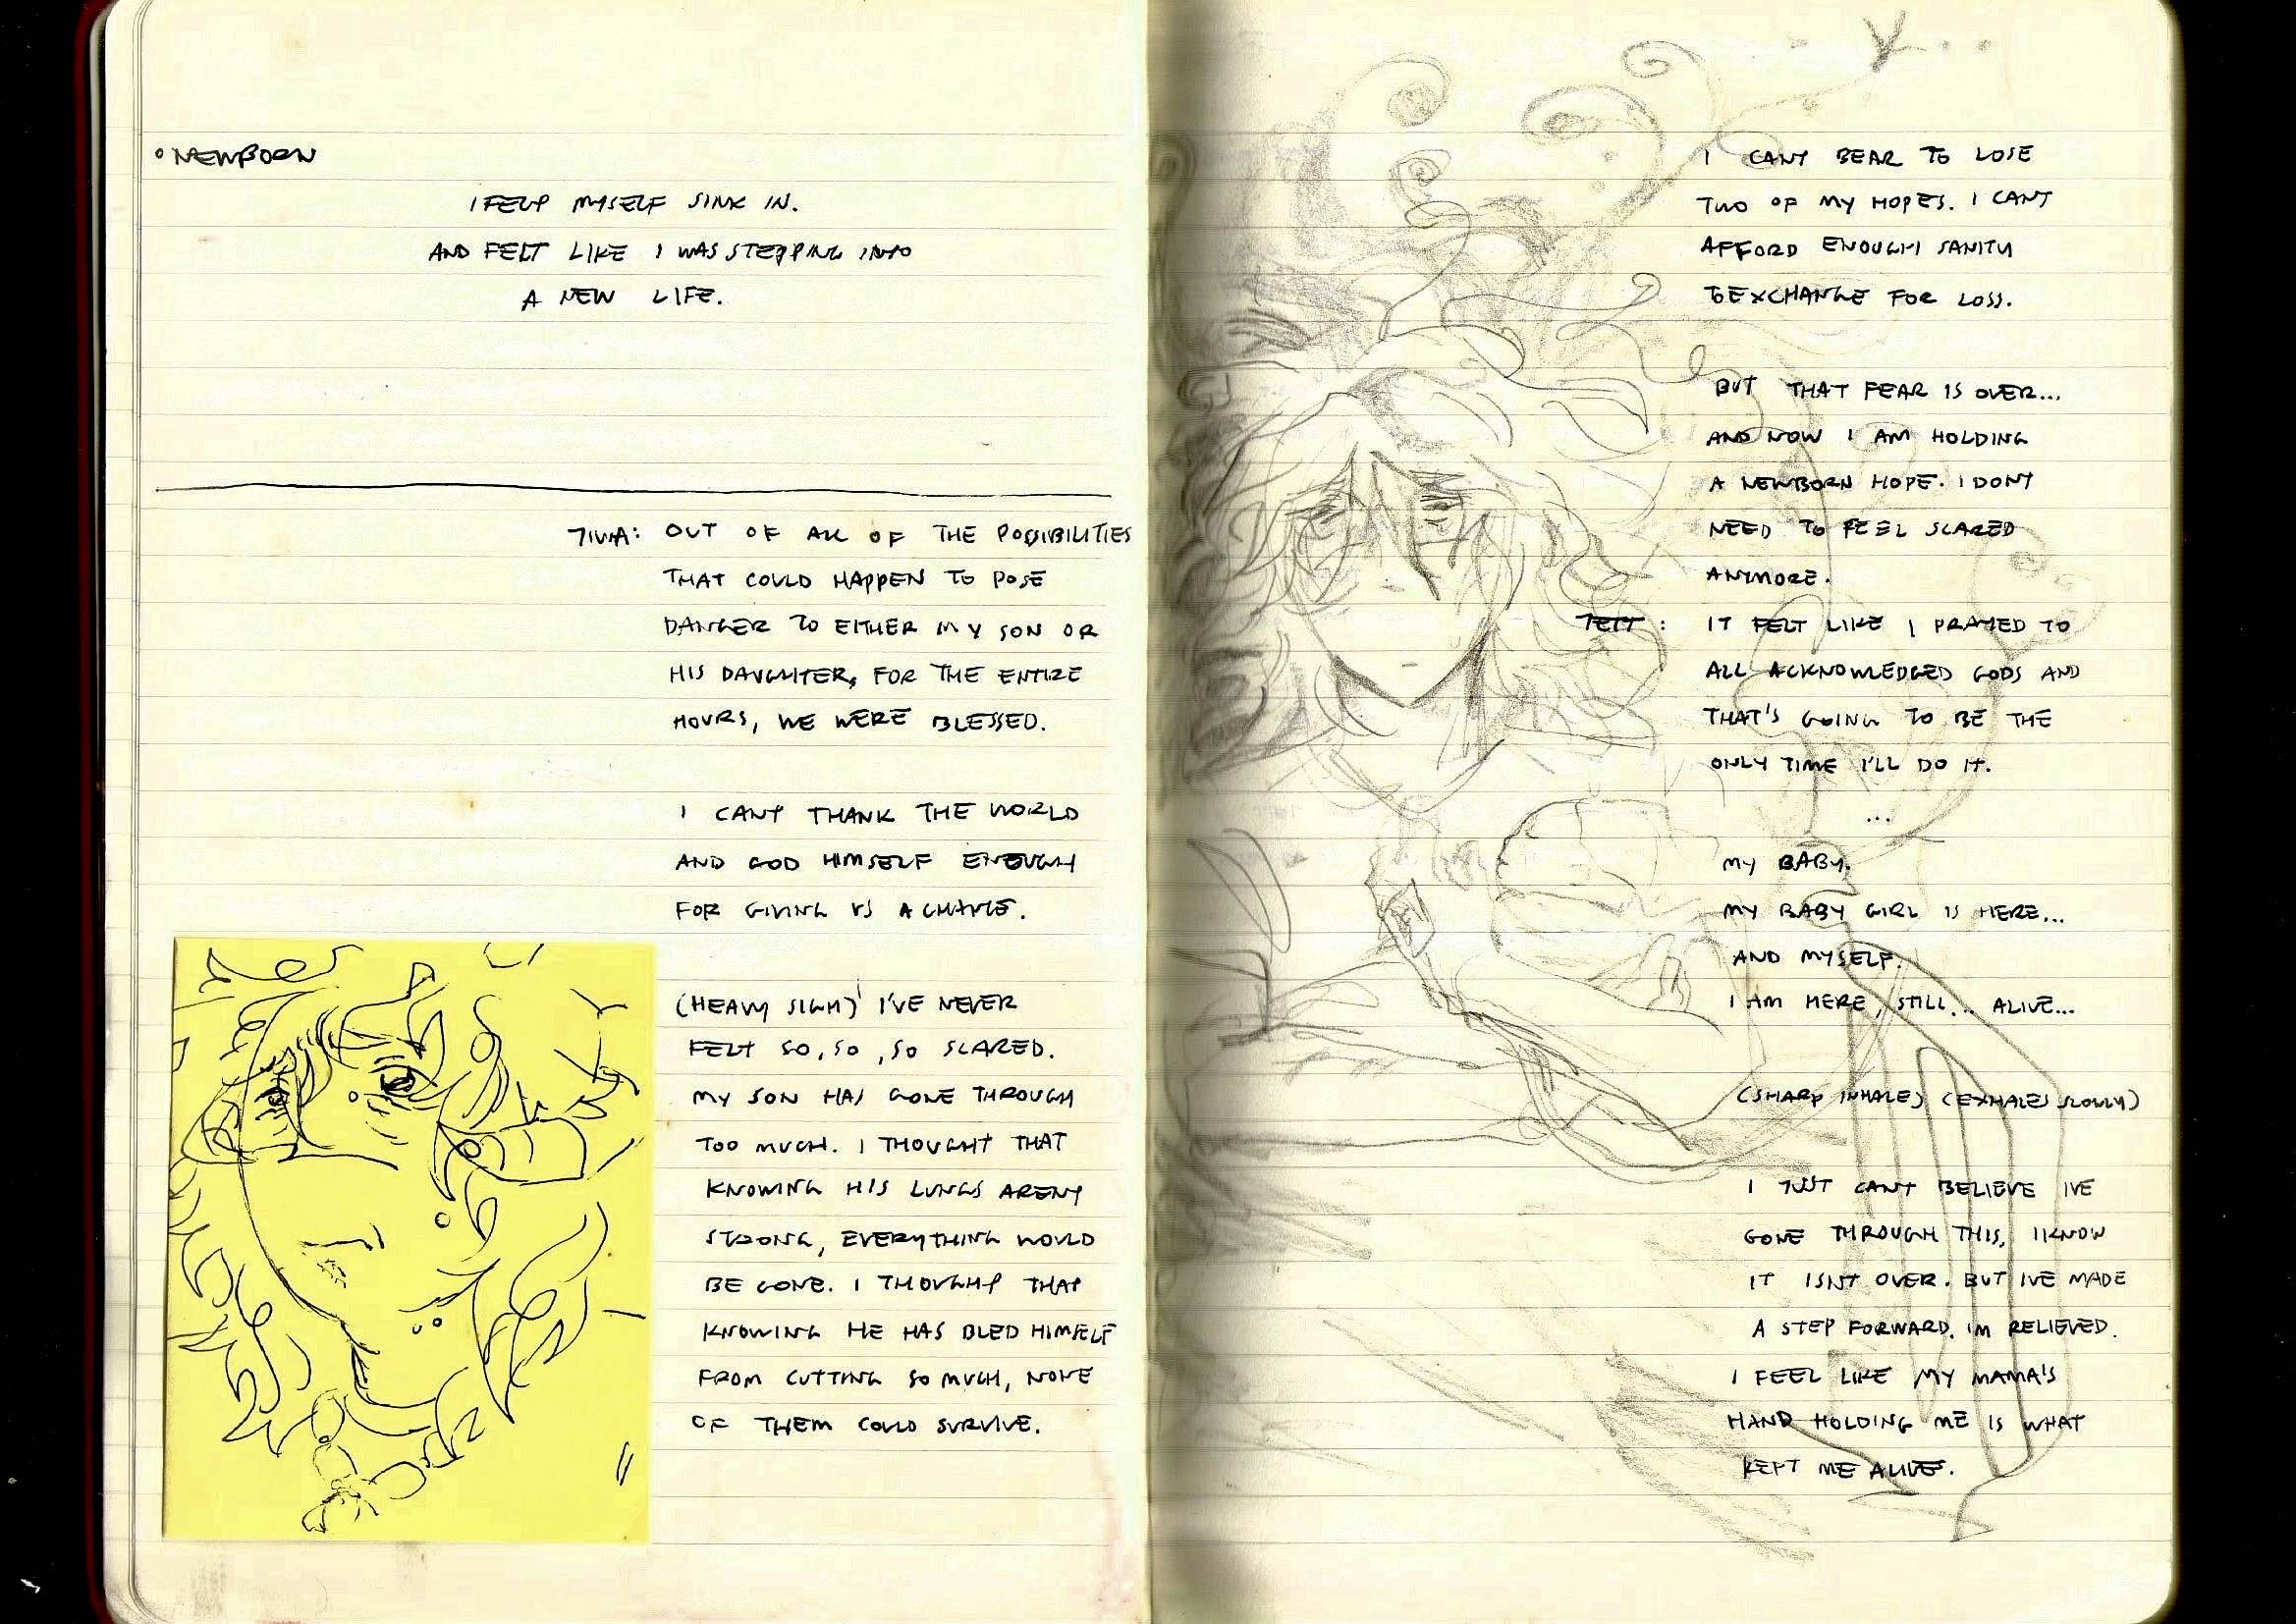 NEWBORN
I FELT MYSELF SINK IN.
AND FELT LIKE I WAS STEPPING INTO
A NEW LIFE.
OUT OF ALL OF THE POSSIBILITIES
THAT COULD HAPPEN TO POSE
DANGER TO EITHER MY SON OR
HIS DAUGHTER, FOR THE ENTIRE
HOURS, WE WERE BLESSED.
I CANT THANK THE WORLD
AND GOD HIMSELF ENOUGH
FOR GIVING US A CHANCE.
(HEAVY SIGH) I'VE NEVER
FELT SO, SO, SO SCARED.
MY SON HAS GONE THROUGH
TOO MUCH. I THOUGHT THAT
KNOWING HIS LUNGS ARENT
STRONG, EVERYTHING WOULD
BE GONE. I THOUGHT THAT
KNOWING HE HAS BLED HIMSELF
FROM CUTTING SO MUCH, NONE
OF THEM COULD SURVIVE.
I CANT BEAR TO LOSE
TWO OF MY HOPES. I CANT
AFFORD ENOUGH SANITY
TO EXCHANGE FOR LOSS.
BUT THAT FEAR IS OVER...
AND NOW I AM HOLDING
A NEWBORN HOPE. I DONT
NEED TO FEEL SCARED
ANYMORE.
IT FELT LIKE I PRAYED TO
ALL ACKNOWLEDGED GODS AND
THAT'S GOING TO BE THE
ONLY TIME I'LL DO IT.
...
MY BABY.
MY BABY GIRL IS HERE...
AND MYSELF.
I AM HERE, STILL... ALIVE...
(SHARP INHALE) (EXHALES SLOWLY)
I JUST CANT BELIEVE IVE
GONE THROUGH THIS, I KNOW
IT ISNT OVER. BUT IVE MADE
A STEP FORWARD. IM RELIEVED.
I FEEL LIKE MY MAMA'S
HAND HOLDING ME IS WHAT
KEPT ME ALIVE.